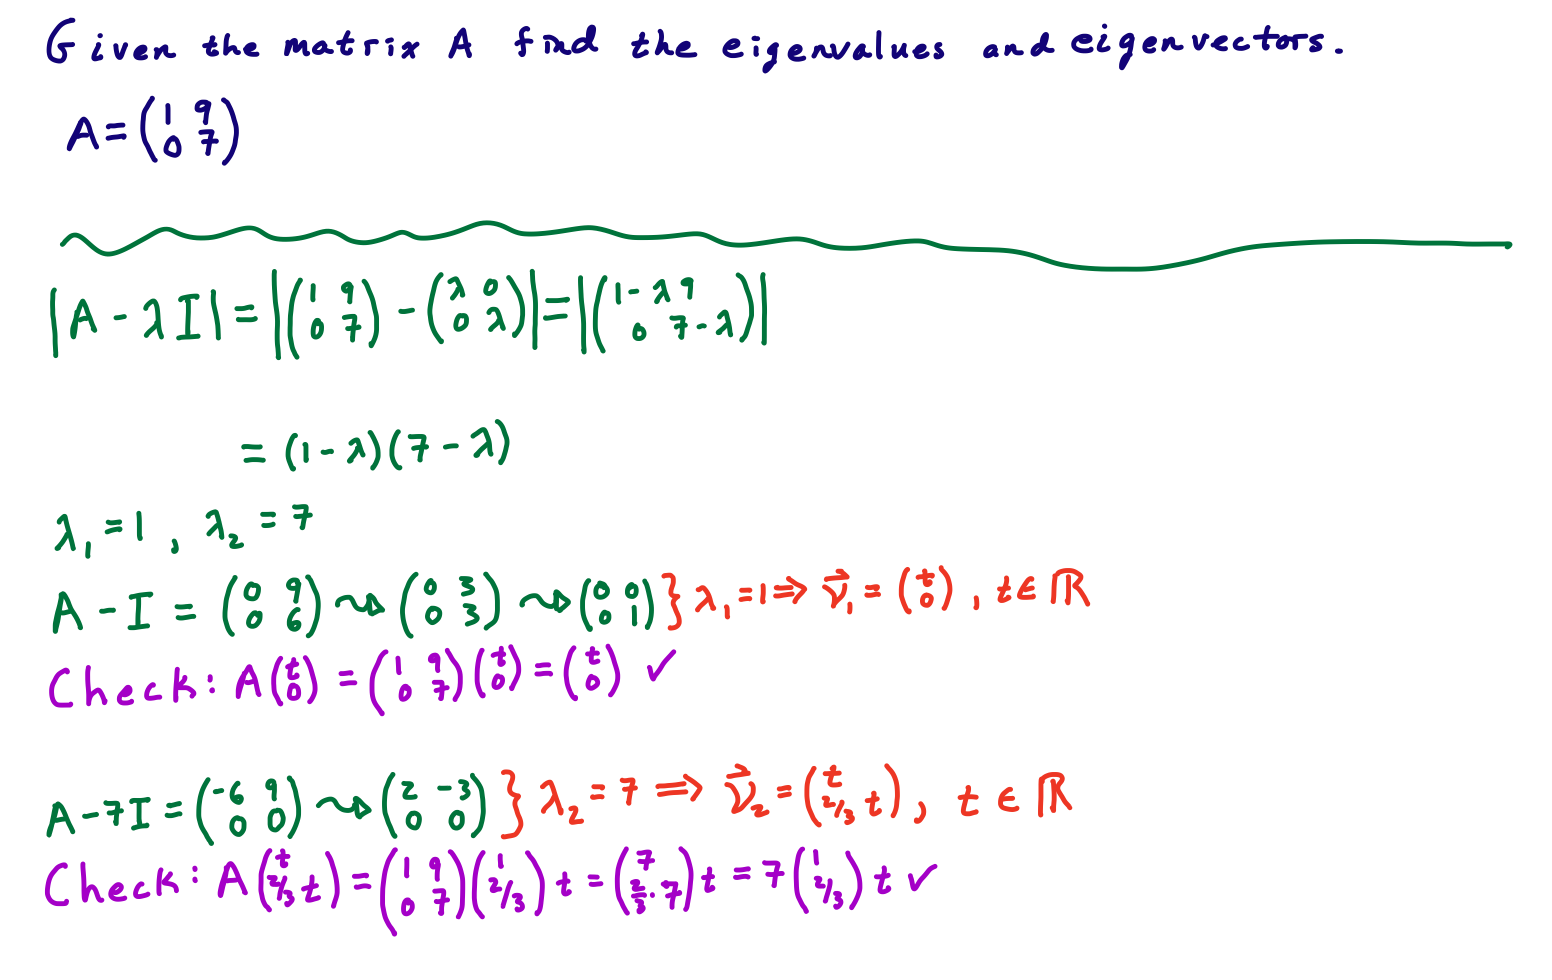 Given the matrix A find the eigenvalues and eigenvectors.
A = (1 9; 0 7)
|A - λI| = |(1 9; 0 7) - (λ 0; 0 λ)| = |(1-λ 9; 0 7-λ)|
= (1-λ)(7-λ)
λ₁ = 1 , λ₂ = 7
A - I = (0 9; 0 6) ⇝ (0 3; 0 3) ⇝ (0 0; 0 1) } λ₁ = 1 ⇒ v⃗₁ = (t; 0) , t ∈ ℝ
Check: A(t; 0) = (1 9; 0 7)(t; 0) = (t; 0) ✓
A - 7I = (-6 9; 0 0) ⇝ (2 -3; 0 0) } λ₂ = 7 ⇒ v⃗₂ = (t; 2/3 t) , t ∈ ℝ
Check: A(t; 2/3 t) = (1 9; 0 7)(1; 2/3) t = (7; 2/3 · 7) t = 7(1; 2/3) t ✓